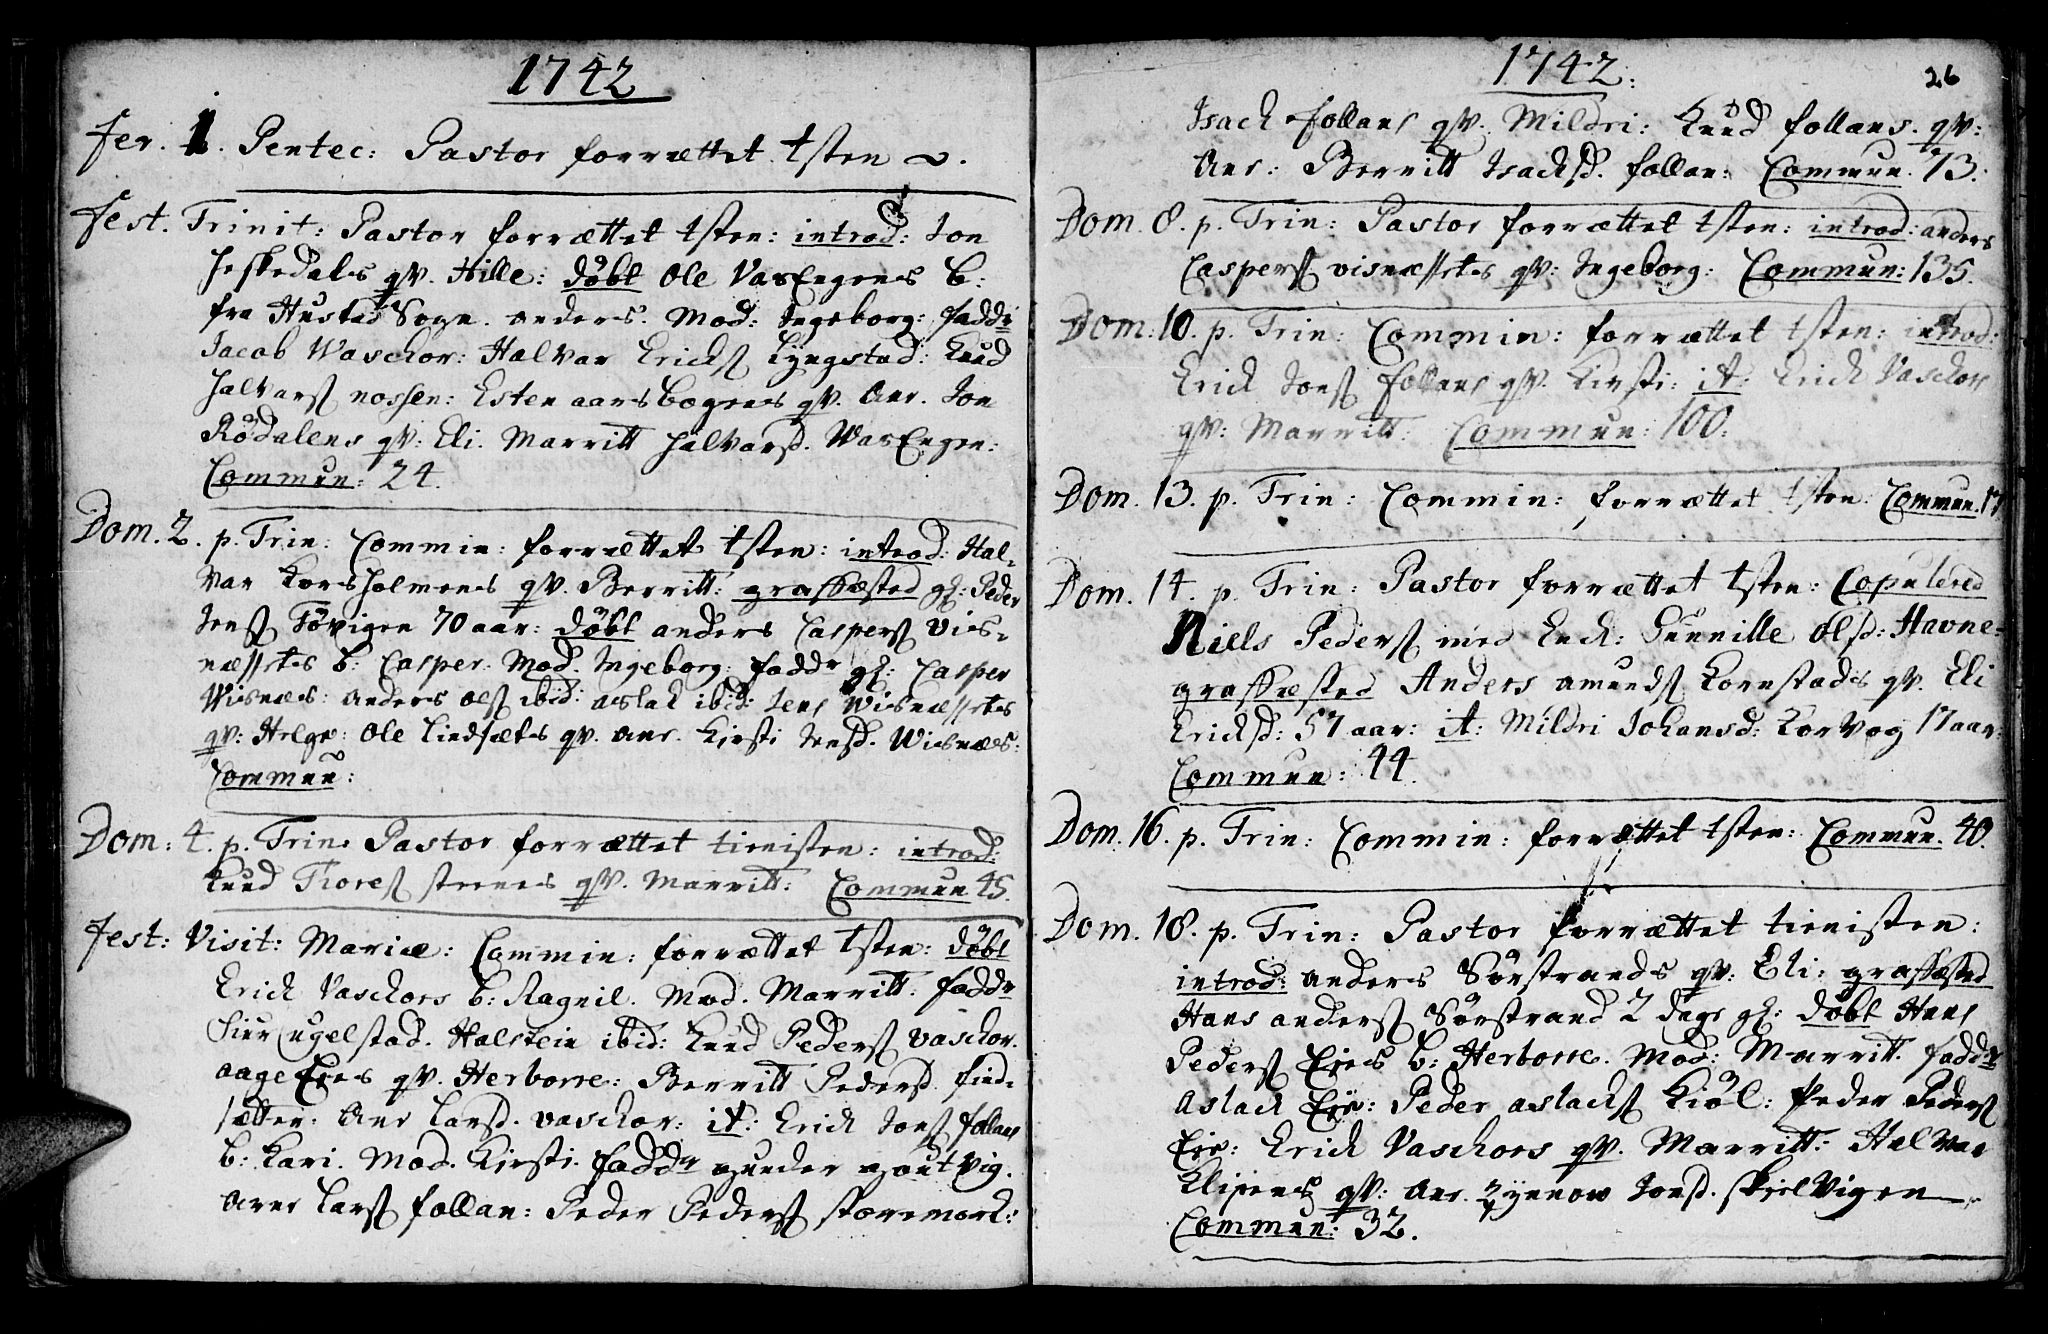 1742
Fer. 1. Pentec: Pastor forrættet tsten
Fest. Trinit: Pastor forrættet tsten: introd: Jon
Heskedals qv. Hille: døbt Ole VasEngens b:
fra Hustad Sogn. anders. Mod: Ingeborg: fadd:r
Jacob Waschor: Halvar Ericks: Lyngstad: Knud
Halvars: nossen: Esten aarsbogens qv. Ane. Jon
Rødalens qv: Eli. Marritt Halvarsd. WasEngen:
Commun: 24.
Dom. 2. p. Trin: Commin: forrættet tsten: introd: Hal-
var Korsholmens qv. Berritt: graffæsted gl: Peder
Jens: Tøvigen 70 aar: døbt anders Caspers: Vis-
næssets b: Casper. Mod. Ingeborg: fadd:r gl: Casper
Wisnæs: anders Ols: ibid: aslak ibid: Jens Wisnæssets
qv: Helge: Ole Lindsæts qv. Ane. Kirsti Jensd. Wisnæs:
Commun:
Dom: 4. p. Trin: Pastor forrættet tienisten: introd:
Knud Thores: steenes qv. Marritt: Commun 45.
Fest: Visit: Mariæ: Commin: forrættet tsten: døbt
Erick Vaschors b: Ragnil. Mod. Marritt. fadd:r
Siur ugelstad. Halstein ibid: Knud Peders: vaschor.
aage Eies qv. Herborre: Berritt Pedersd. find-
sætter: Ane Larsd. vaschor: it: Erick Jons: follans
b: Kari. Mod. Kirsti. fadd:r gunder
Arne Lars: follan: Peder Peders: storemork:
1742: 26
Isach follans qv. Mildri: Knud follans. qv:
Ane: Berritt Isachsd. follan: Commun. 73.
Dom. 8. p. Trin: Pastor forrættet tsten: introd: anders
Caspers: visnæssets qv: Ingeborg: Commun: 135.
Dom: 10. p. Trin: Commin: forrættet tsten: introd:
Erick Jons: follans qv. Kirsti: it: Erick Vaschors
qv: Marritt: Commun: 100.
Dom. 13. p. Trin: Commin: forrættet tsten: Commun. 17
Dom. 14. p. Trin: Pastor forrættet tsten: Copulered
Niels Peders: med Enck: Gunnille Olsd: Havne-
graffæsted Anders amunds: Kornstads qv. Eli
Ericksd: 57 aar: it: Mildri Johansd: Korvog 17 aar:
Commun: 44.
Dom. 16. p. Trin: Commin: forrættet tsten: Commun. 40.
Dom. 18. p. Trin: Pastor forrættet tienisten:
introd: anders Sørstrands qv: Eli: graffæsted
Hans anders: Sørstrand 2 dage gl: døbt Hans
Peders: Eies b: Herborre. Mod: Marritt. fadd:r
Aslach Eie: Peder aslacks: Kiøl: Peder Peders:
Eie: Erick Vaschors qv. Marritt: Halvar
Klipens qv: Ane. Synnow Jonsd. skielvigen
Commun: 32.